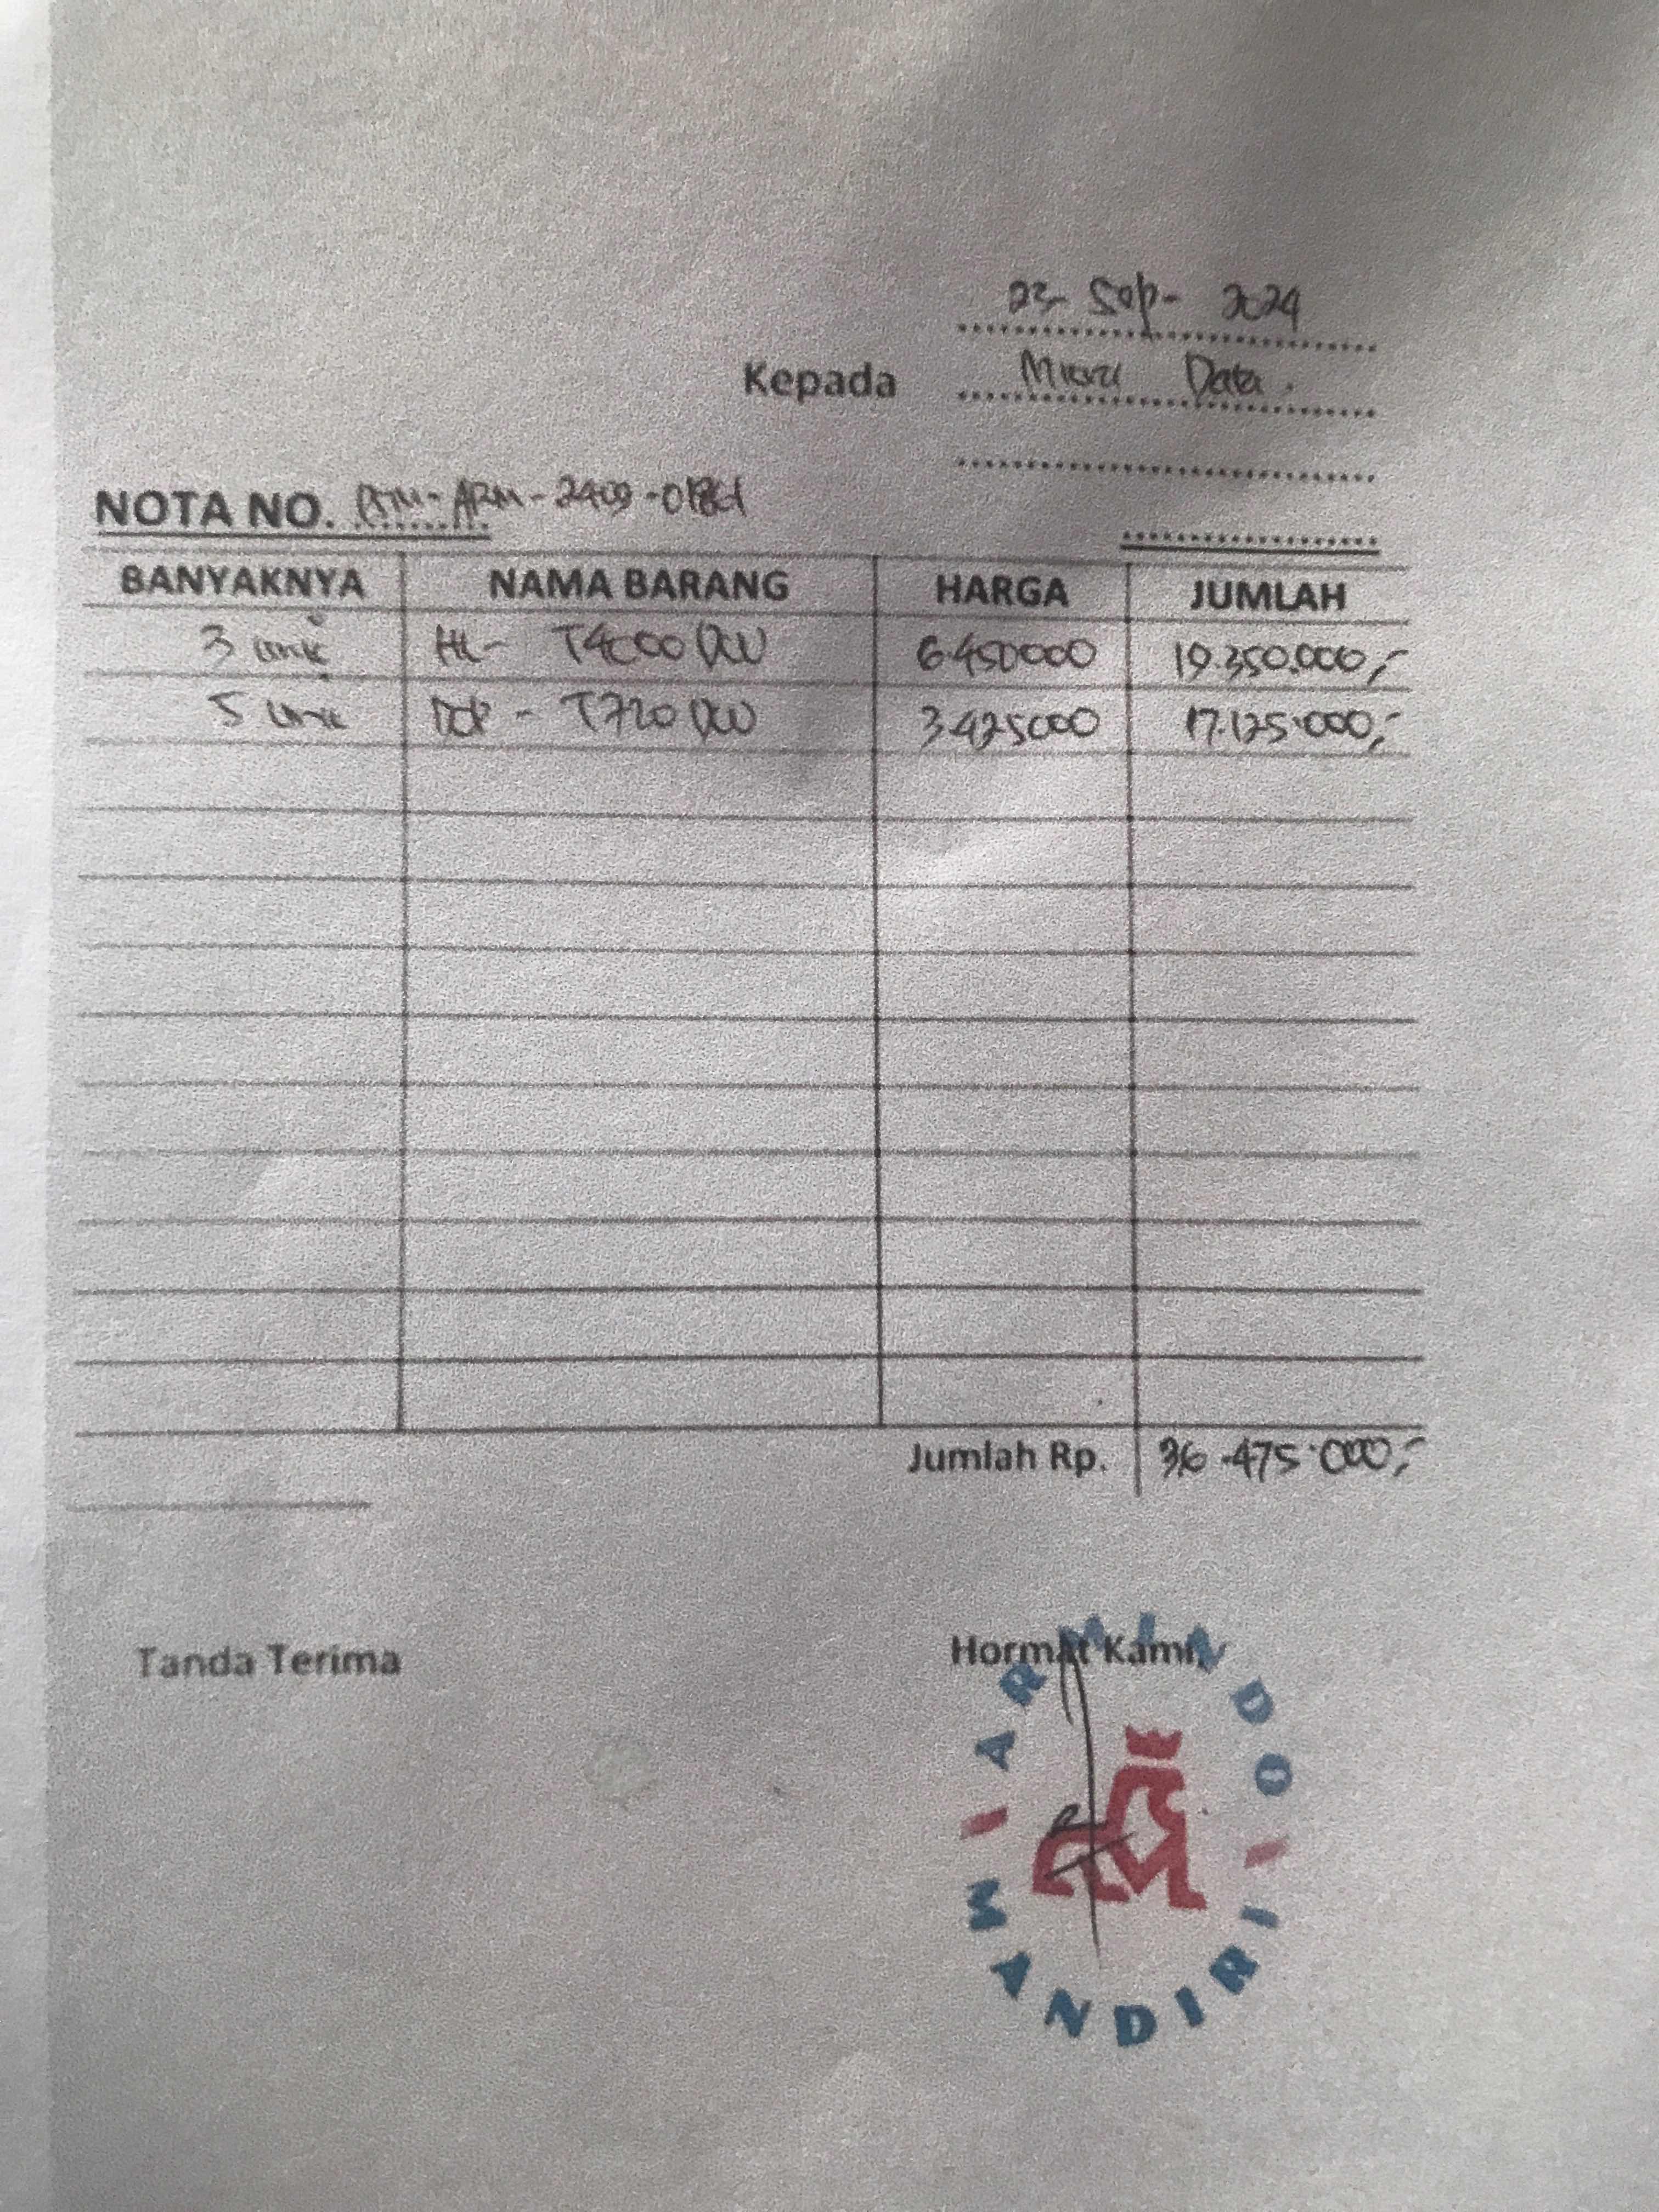 23-Sep-2024
Kepada Data.
NOTA NO. -ARM-2409-
BANYAKNYA NAMA BARANG HARGA JUMLAH
3 unit HL- T4000 DW 6.450000 19.350.000,-
5 unit DCP - T720 DW 3.425000 17.125.000,-
Jumlah Rp. 36.475.000,-
Tanda Terima Hormat Kami,
ARMINDO
MANDIRI